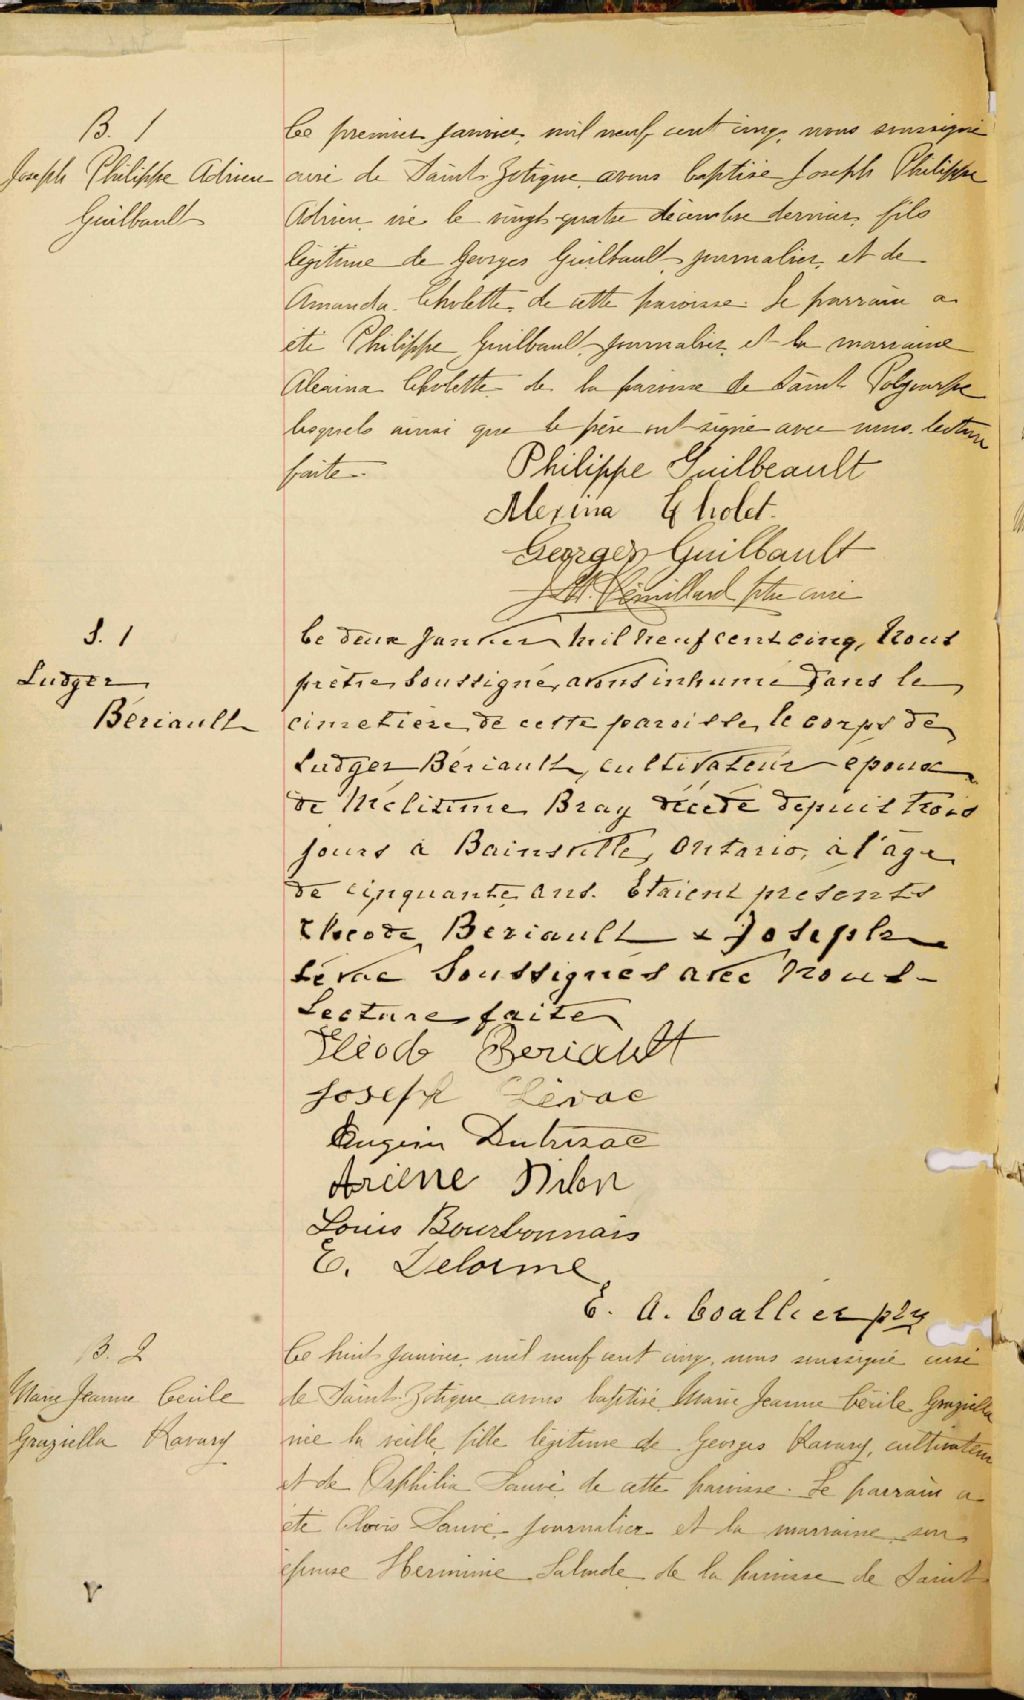 B. 1
Joseph Philippe Adrien
Guilbault
Ce premier janvier, mil neuf cent cinq, nous soussigné
curé de Saint Zotique avons baptisé Joseph Philippe
Adrien, né le vingt-quatre décembre dernier, fils
légitime de Georges Guilbault, journalier, et de
Amanda Cholette de cette paroisse. Le parrain a
été Philippe Guilbault, journalier, et la marraine
Alexina Cholette de la paroisse de Saint Polycarpe
lesquels ainsi que le père ont signé avec nous. Lecture
faite.
Philippe Guilbeault
Alexina Cholet.
Georges Guilbault
Rémillard ptre curé
S. 1
Ludger
Bériault
Ce deux Janvier mil neuf cent cinq, Nous
prêtre soussigné, avons inhumé dans le
cimetière de cette paroisse, le corps de
Ludger Bériault, cultivateur époux
de Mélisime Bray décédé depuis trois
jours à Bainsville, Ontario, à l'âge
de cinquante ans. Étaient présents
Théode Bériault & Joseph
Lévac Soussignés avec Nous-
Lecture faite
Théode Beriault
Joseph Lévac
Eugène Dutrisac
Louis Bourbonnais
E. Delorme
E. A. Coallier ptre
B. 2
Marie Jeanne Cécile
Graziella Ravary
Ce huit janvier, mil neuf cent cinq, nous soussigné curé
de Saint Zotique avons baptisé Marie Jeanne Cécile Graziella
née la veille, fille légitime de Georges Ravary, cultivateur
et de Orphilia Sauvé de cette paroisse. Le parrain a
été Clovis Sauvé, journalier et la marraine son
épouse Herminie Lalonde de la paroisse de Saint
V